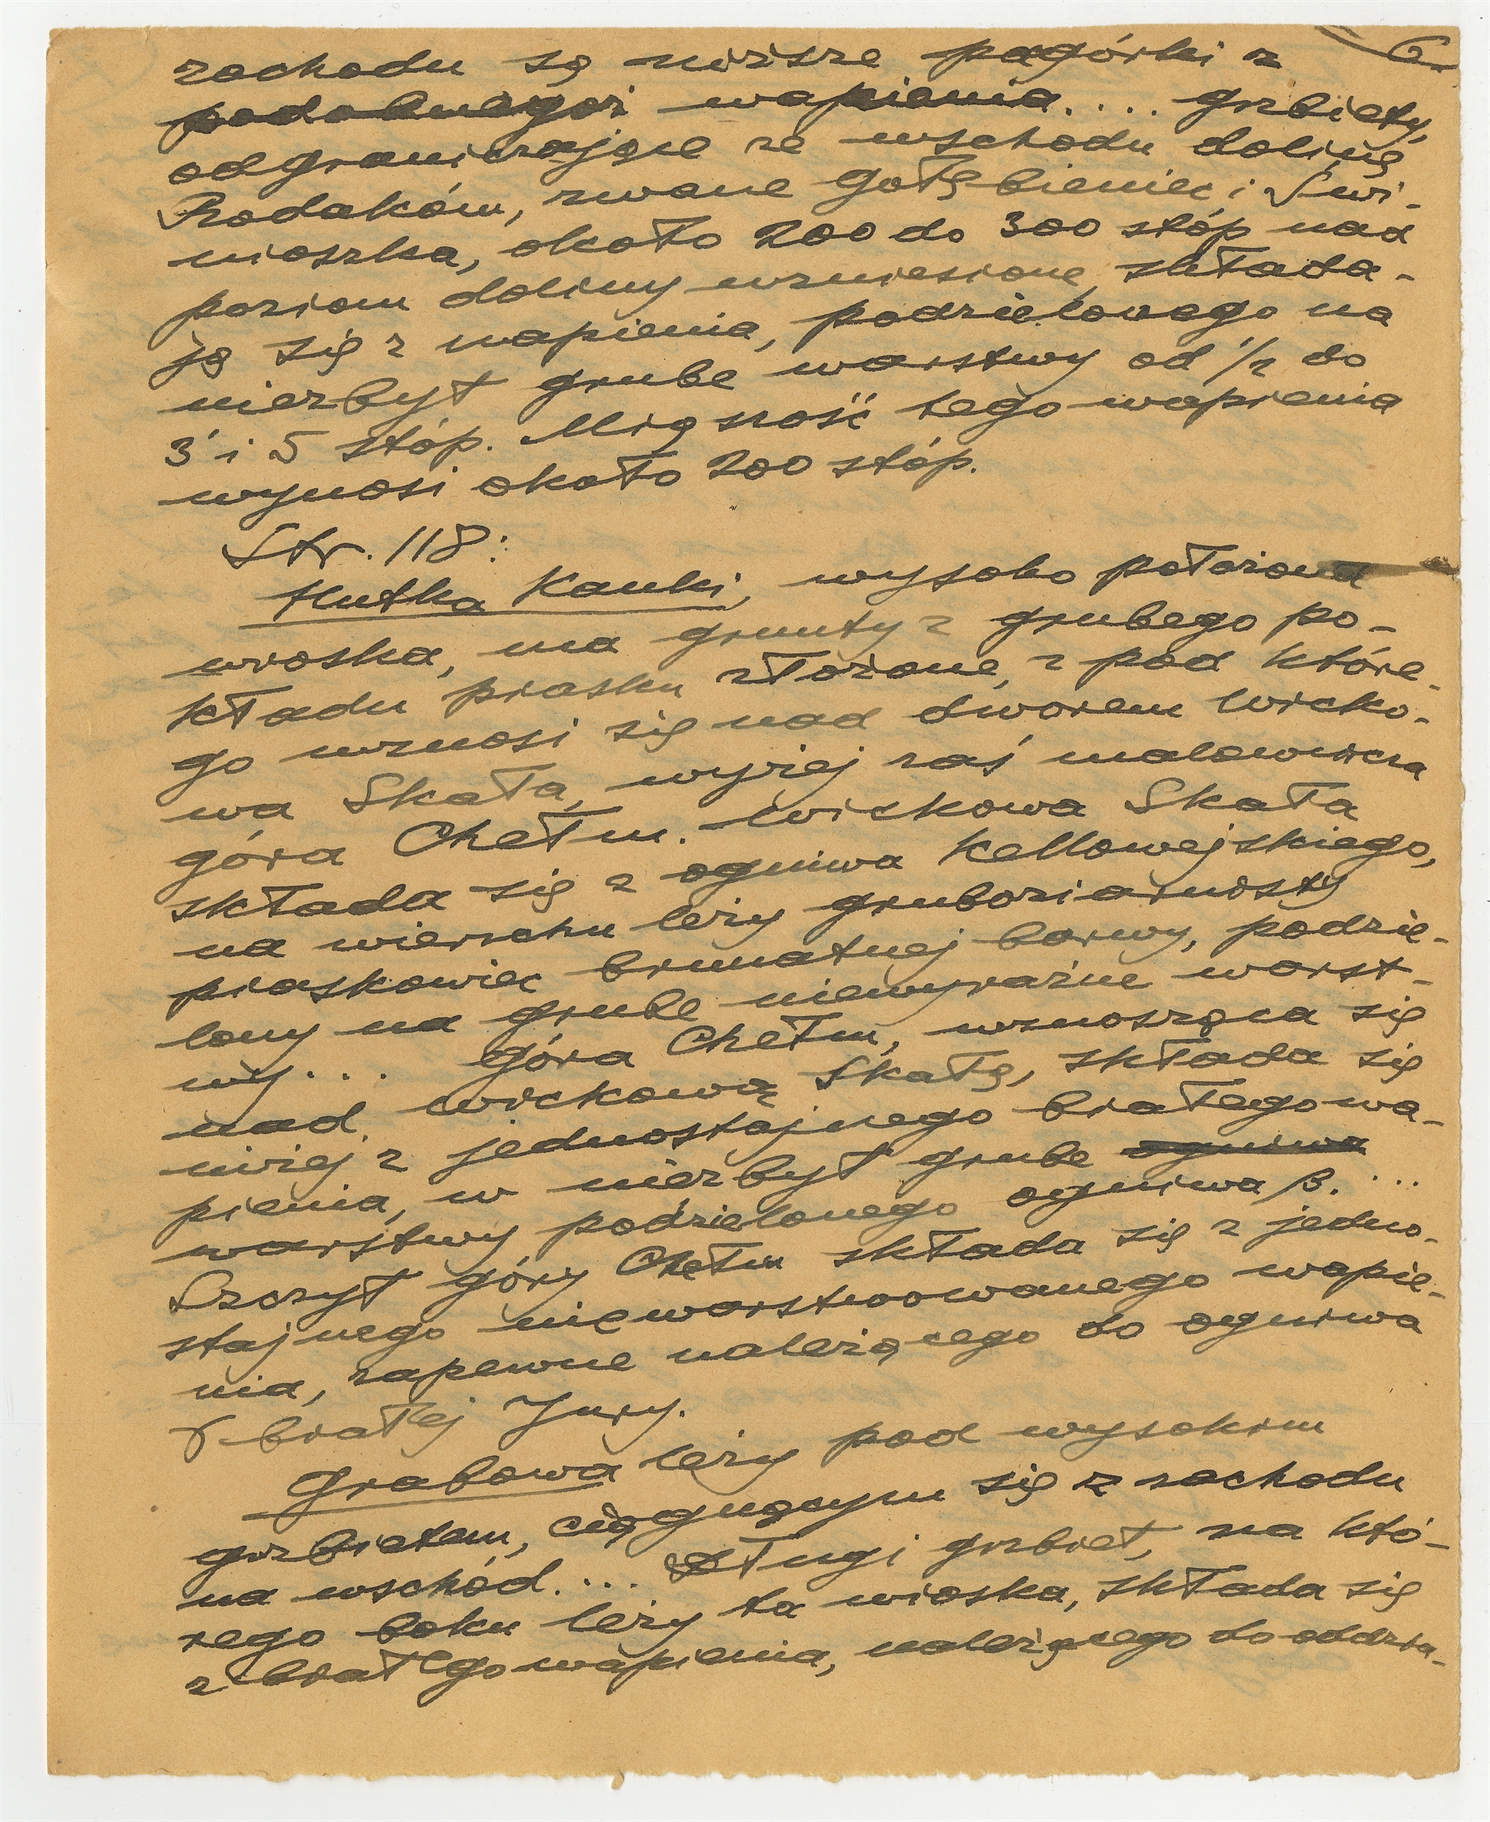 6.
zachodu są niższe pagórki z
podobnegoż wapienia.... grzbiety,
odgraniczające ze wschodu dolinę
Rodaków, zwane Gołębieniec i Świ-
nioszka, około 200 do 300 stóp nad
poziom doliny wzniesione, składa-
ją się z wapienia, podzielonego na
niezbyt grube warstwy od 1/2 do
3 i 5 stóp. Miąszość tego wapienia
wynosi około 200 stóp.
Str. 118:
Hutka Kanki, wysoko położona
wioska, ma grunty z grubego po-
kładu piasku złożone, z pod które-
go wznosi się nad dworem Wicko-
wa Skała, wyżej zaś malownicza
góra Chełm. Wickowa Skała
składa się z ogniwa Kellowejskiego,
na wierzchu leży gruboziarnisty
piaskowiec brunatnej barwy, podzie-
lony na grube niewyraźne warst-
wy... Góra Chełm, wznosząca się
nad Wickową Skałą, składa się
niżej z jednostajnego białego wa-
pienia, w niezbyt grube ogniwa
warstwy podzielonego ogniwa β....
Szczyt góry Chełm składa się z jedno-
stajnego nieuwarstwowanego wapie-
nia, zapewne należącego do ogniwa
γ białej Jury.
Grabowa leży pod wysokim
grzbietem, ciągnącym się z zachodu
na wschód.... Długi grzbiet, na któ-
rego boku leży ta wioska, składa się
z białego wapienia, należącego do oddzia-